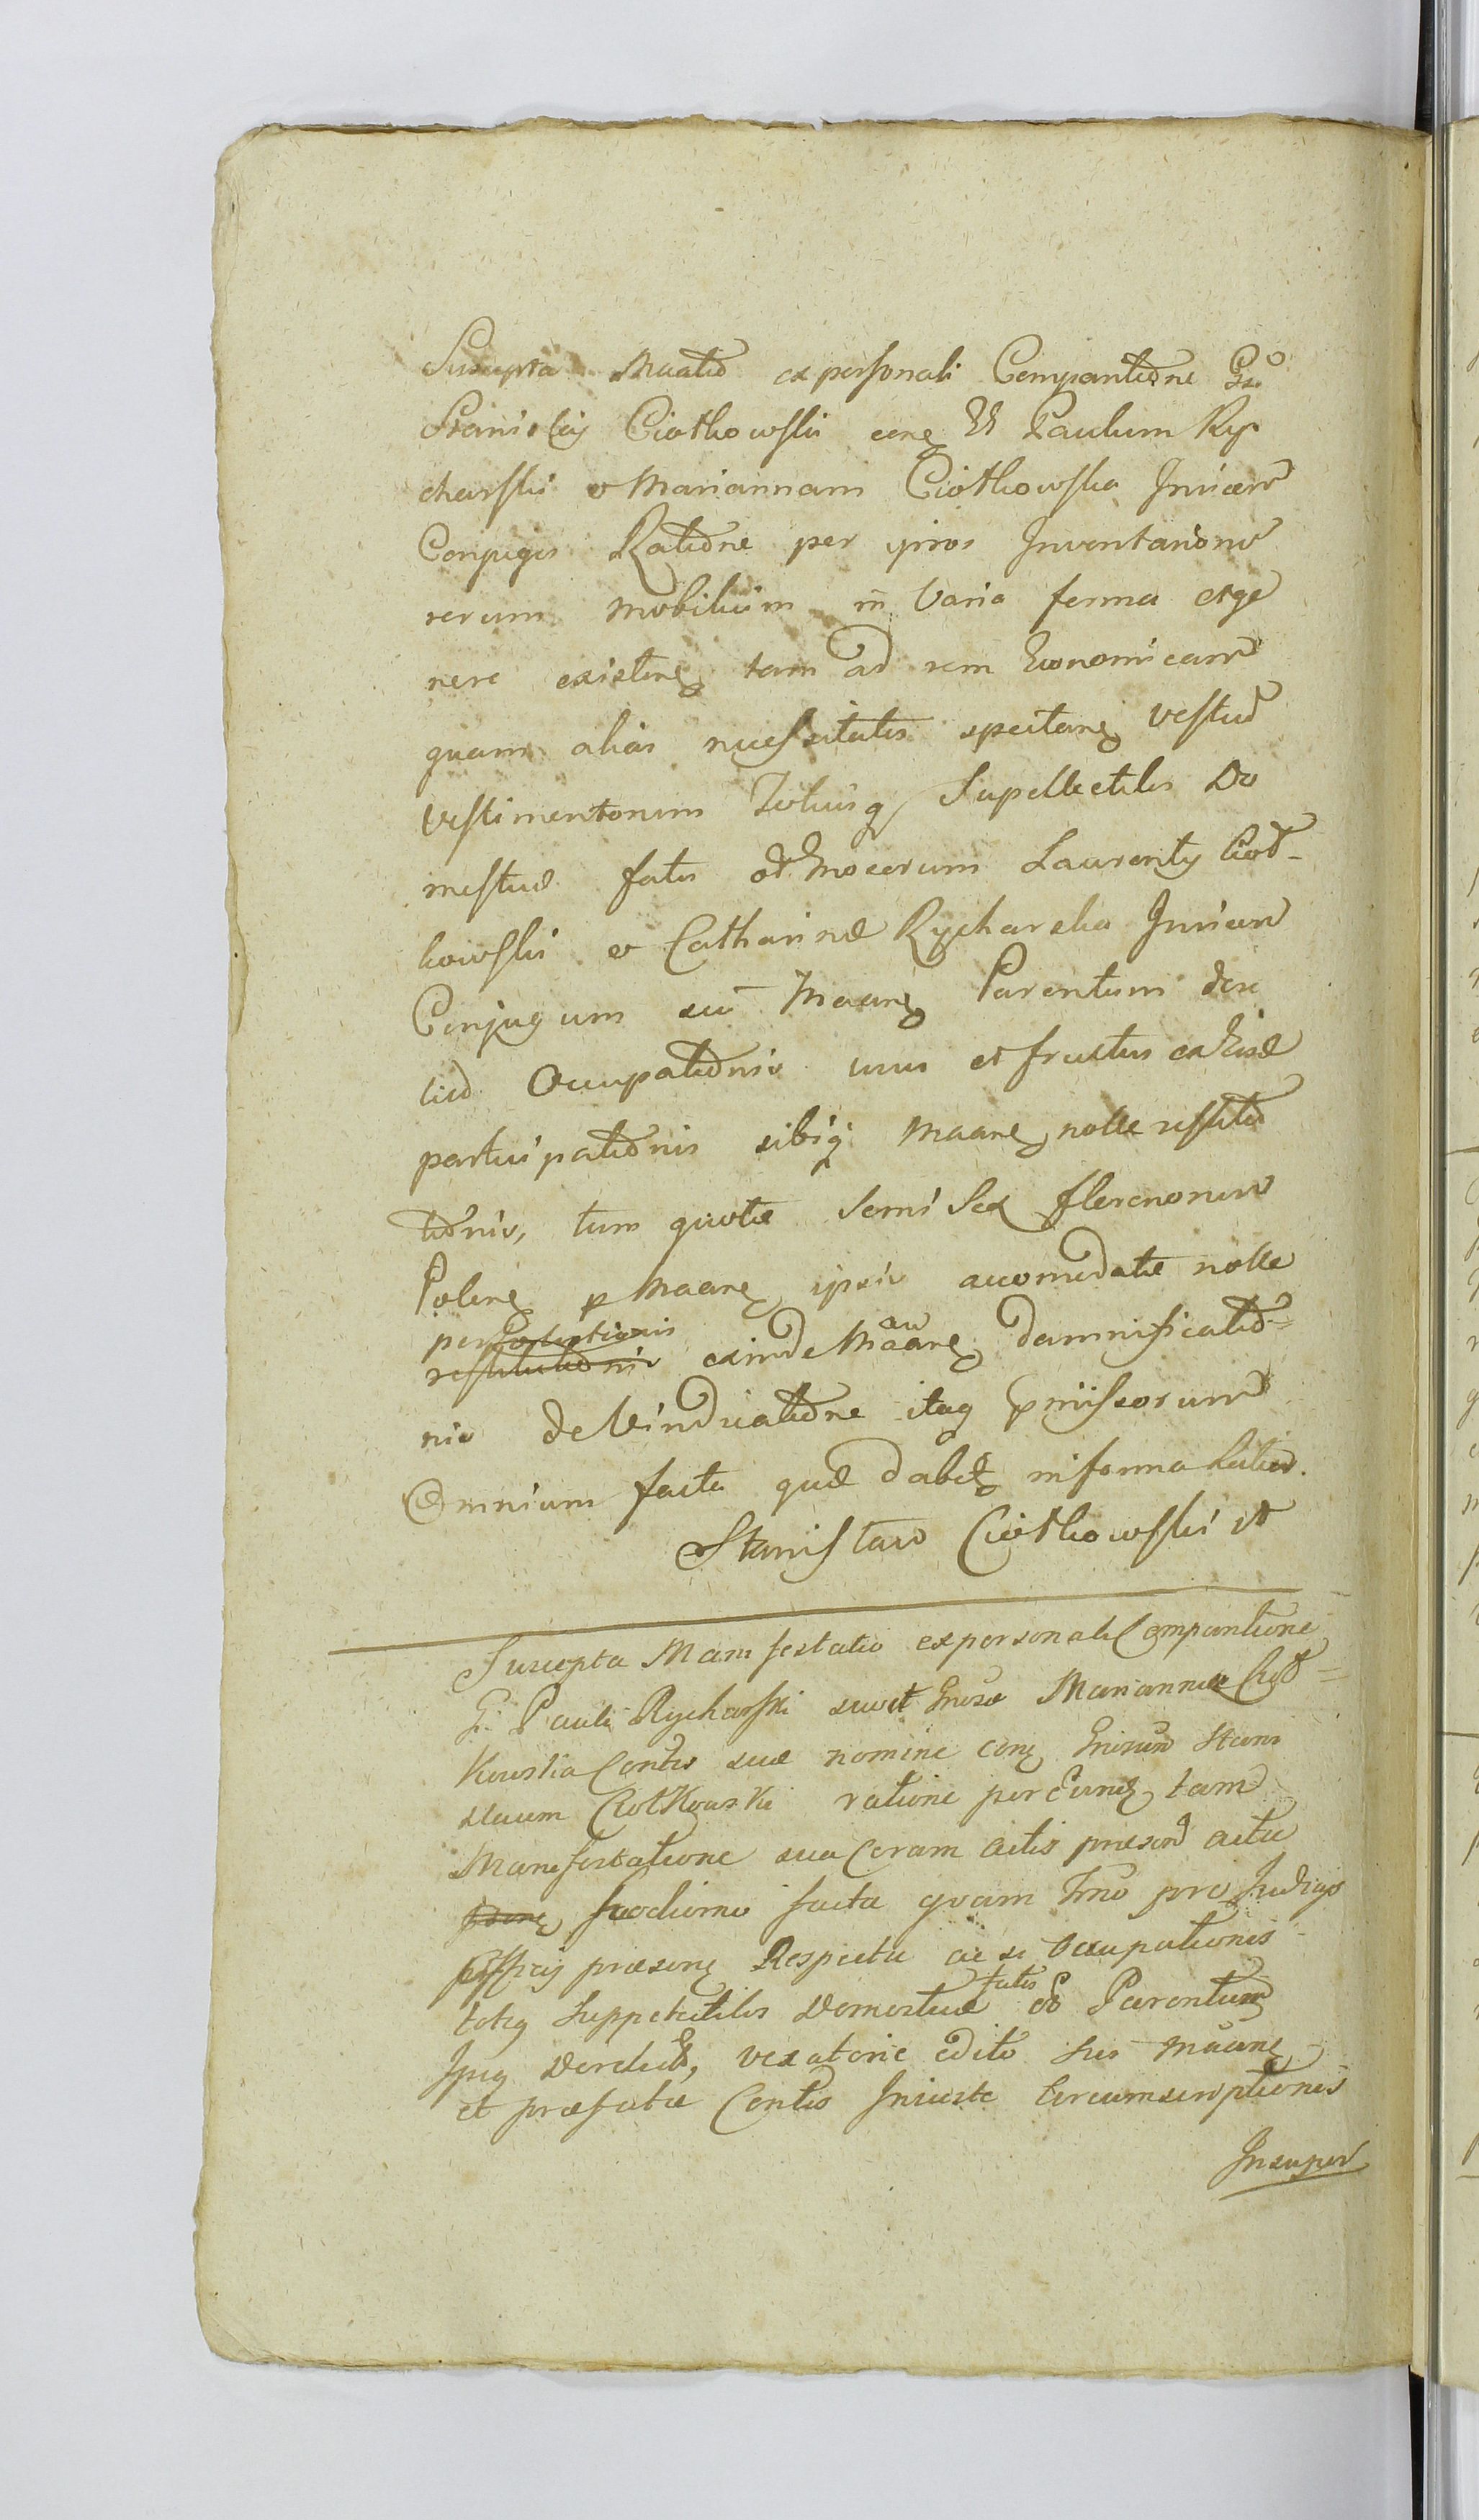 Suscepta Maatio ex personali Comparitione Gsi
Stanislai Ciotkowski cong Gs Paulum Ry
charski et Mariannam Ciotkowska Invicem
Conjuges Ratione per ipsos Inventariorum
rerum mobilium in varia forma et ge
nere existeng tam ad rem Economicam
quam alias necessitatis spectang vestium
vestimentorum Totiusq Supellectilis Do
mesticæ fatis olim Gnosorum Laurentij Ciot-
kowski et Catharinæ Rycharska Invicem
Conjugum sui Maang Parentum
Occupationis usus et fructus ex Eisd
participationis sibiq Maang nolle restitu
tionis, tum quotæ semi sex florenorum
Polong p Maang ipsis accomodatæ nolle
persolutionis
restitutionis exinde Maang damnificatio=
nis de Vindicatione itaq præmissorum
Omnium facta quæ dabitur in forma Latior.
Stanisław Ciotkowski
Suscepta Manifestatio ex personali Comparitione
G. Pauli Rycharski suo et Gnosæ Mariannæ Ciot=
kowska Contis suæ nomine cong Gnosum Stani
slaum Ciotkowski ratione per Eundem tam
Manifestatione sua Coram Actis præsent actu
hodierno facta quam
præseng Respectu ac si Occupationis
totiq Suppelectilis Domesticæ fatis olim Parentum
Ipsiq Derelict, vexatorie edito sui Maang
et præfatæ Contis Iniuste Circumscriptionis
Insuper